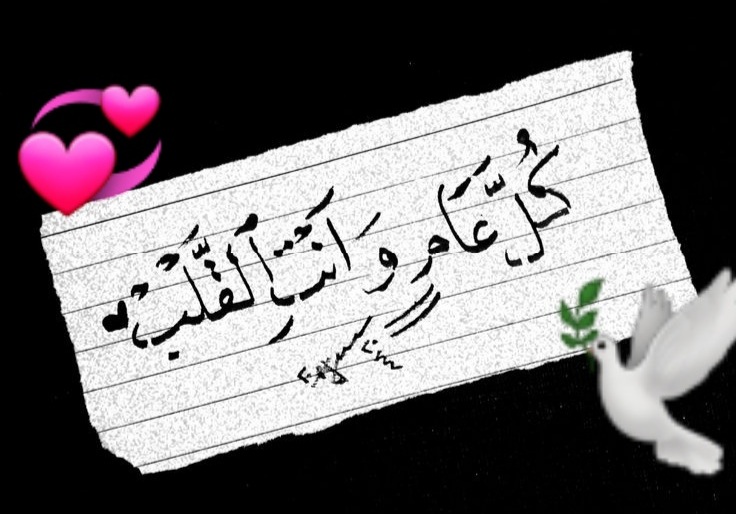 كُلّ عَامٍ و انْتِ القَلْب